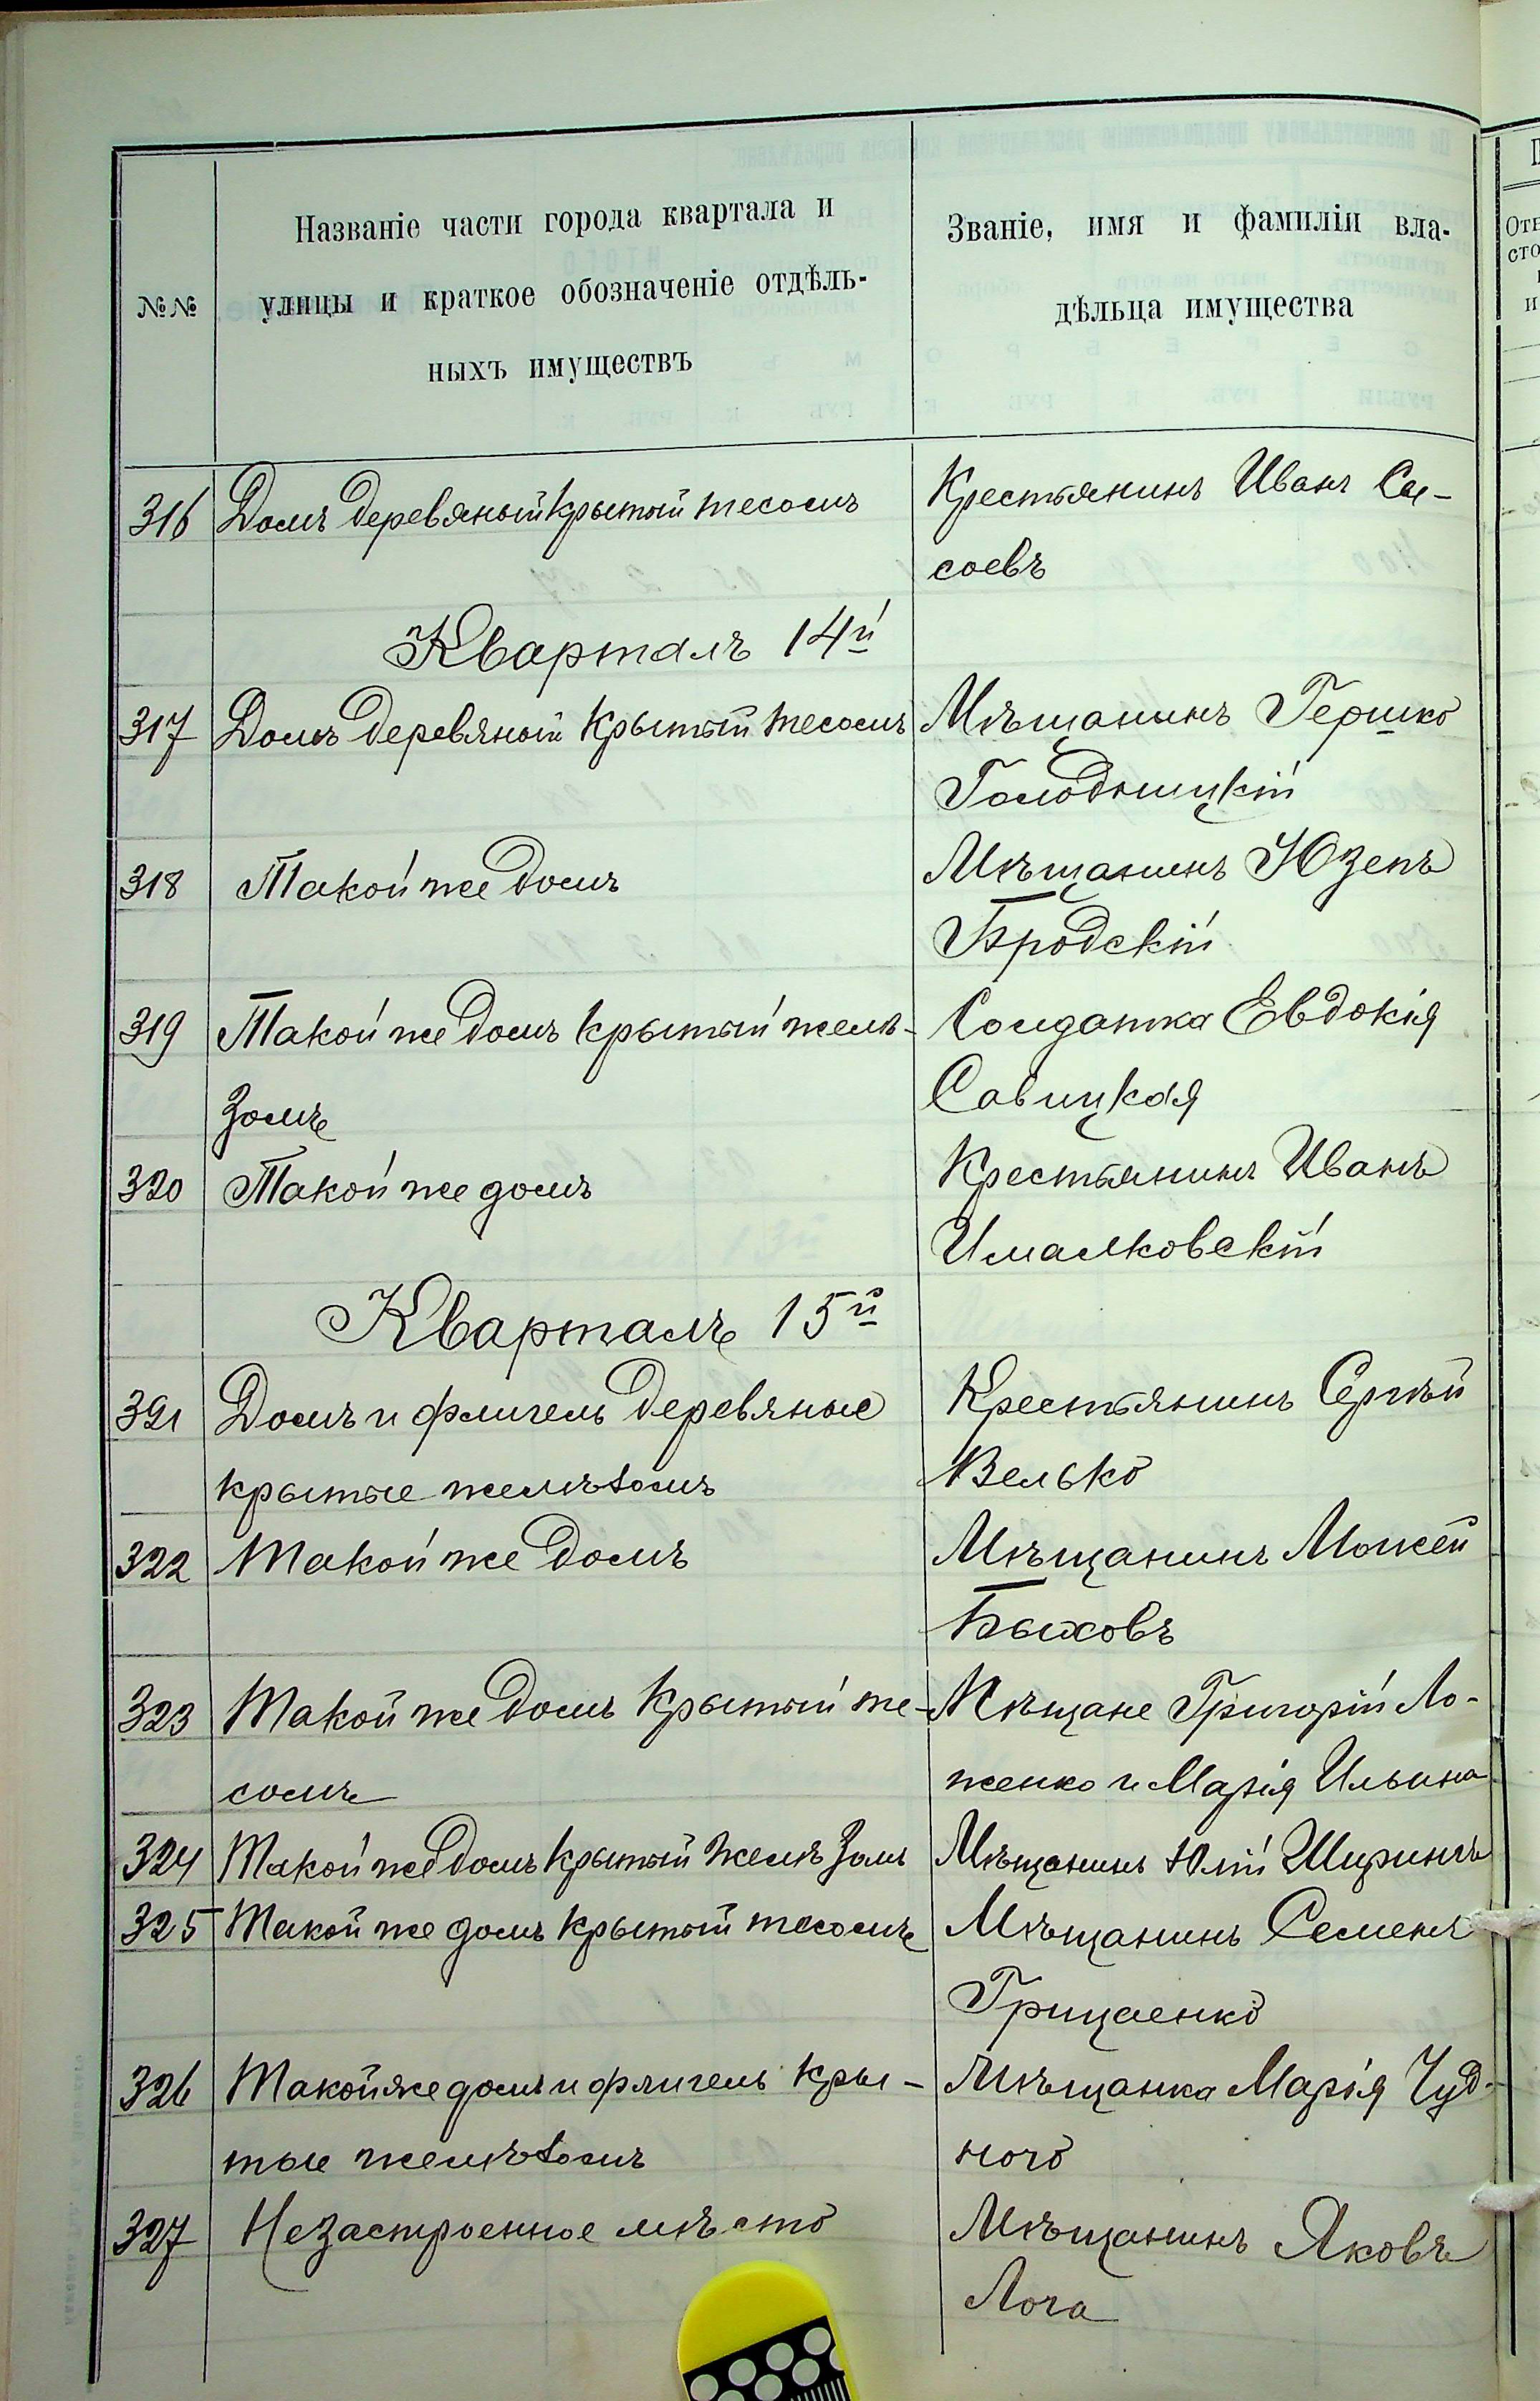 №№
Названіе части города квартала и
улицы и краткое обозначеніе отдѣль-
ныхъ имуществъ
Званіе, имя и фамиліи вла-
дѣльца имущества
316 Домъ деревяный крытый тесомъ Крестьянинъ Иванъ Сы-
соевъ
Кварталъ 14й
317 Домъ деревяный крытый тесомъ Мѣщанинъ Гершко
Голодницкій
318 Такой же домъ Мѣщанинъ Юзепъ
Бродскій
319 Такой же домъ крытый желѣ- Солдатка Евдокія
зомъ Савицкая
320 Такой же домъ Крестьянинъ Иванъ
Кварталъ 15й
321 Домъ и флигель деревяные Крестьянинъ Сергѣй
крытые желѣзомъ Велько
322 Такой же домъ Мѣщанинъ
Быховъ
323 Такой же домъ крытый те- Мѣщане Григорій Ло-
сомъ женко и Марія Ильина
324 Такой же домъ крытый желѣзомъ Мѣщанинъ Юлій Ширинъ
325 Такой же домъ крытый тесомъ Мѣщанинъ Семенъ
Грищаенко
326 Такой же домъ и флигель кры- Мѣщанка Марія Чуд-
тые желѣзомъ ного
327 Незастроенное мѣсто Мѣщанинъ Яковъ